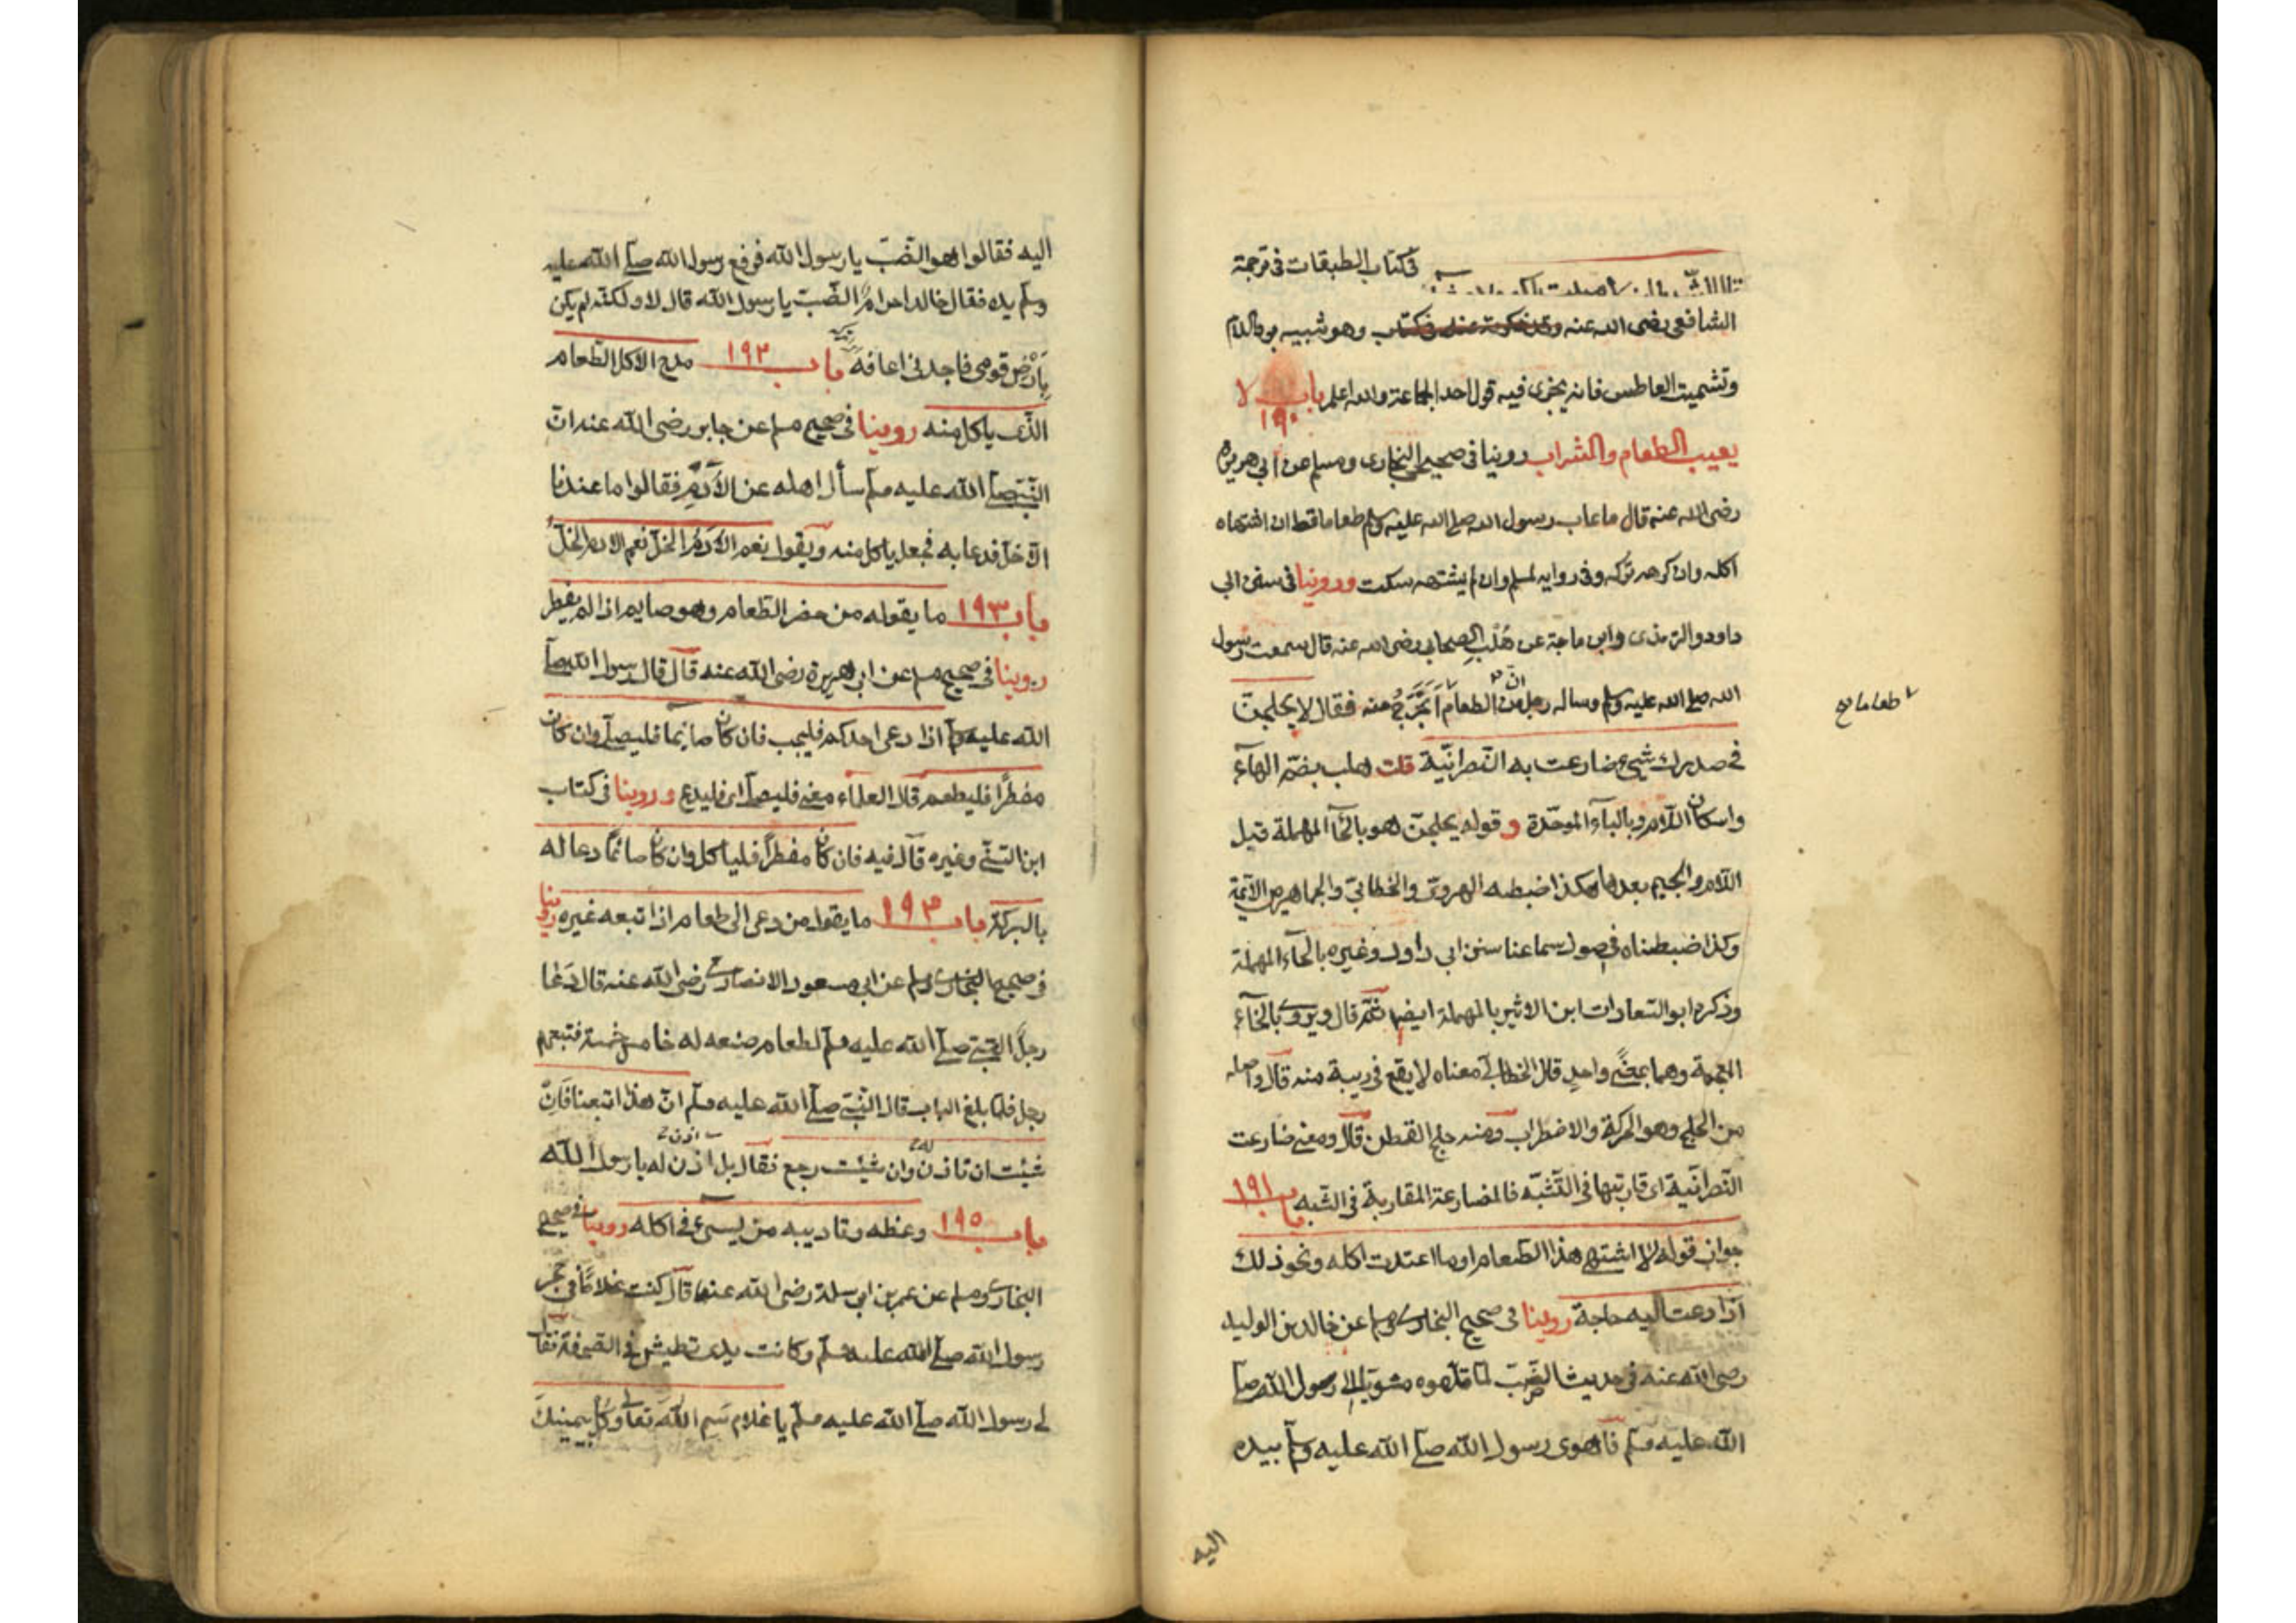 في كتاب الطبقات في ترجمة
الشافعي رضى الله عنه وهو شبيه برد السلام
وتشميت العاطس فانه يجزى فيه قول احد الجماعة والله اعلم باب لا
١٩٠
يعيب الطعام والشراب روينا فى صحيحى البخارى ومسلم عن ابى هريرة
رضى الله عنه قال ما عاب رسول الله صلى الله عليه وسلم طعاما قط ان اشتهاه
اكله وان كرهه تركه وفى رواية لمسلم وان لم يشتهه سكت وروينا فى سنن ابى
داود والترمذى وابن ماجة عن هُلْب الصحابى رضى الله عنه قال سمعت رسول
الله صلى الله عليه وسلم وساله رجل ان من الطعام طعاما اتحرّج منه فقال لا يحلجنّ
فى صدرك شىء ضارعت به النصرانيّة قلت هلب بضمّ الهاء
واسكان اللام وبالباء الموحّدة و قوله يحلجنّ هو بالحاء المهملة قبل
اللام والجيم بعدها هكذا ضبطه الهروىّ والخطابىّ والجماهير من الائمة
وكذا ضبطناه فى اصول سماعنا سنن ابى داود وغيره بالحاء المهملة
وذكره ابو السّعادات ابن الاثير بالمهملة ايضا ثمّ قال ويروى بالخاء
المعجمة وهما بمعنًى واحدٍ قال الخطابى معناه لا يقع فى ريبة منه قال واصله
من الحلج وهو الحركة والاضطراب ومنه حلج القطن قال ومعنى ضارعت
النّصرانيّة اى قاربتها فى التّشبّه فالمضارعة المقاربة فى الشّبه باب ١٩١
جواز قوله لا اشتهى هذا الطّعام او ما اعتدت اكله ونحو ذلك
اذا دعت اليه حاجة روينا فى صحيح البخارى ومسلم عن خالد بن الوليد
رضى الله عنه فى حديث الضّبّ لمّا قدّموه مشويّا الى رسول الله صلى
الله عليه وسلم فاهوى رسول الله صلى الله عليه وسلم بيده
اليه
اليه فقالوا هو الضّبّ يا رسول الله فرفع رسول الله صلى الله عليه
وسلم يده فقال خالد احرامٌ الضّبّ يا رسول الله قال لا ولكنّه لم يكن
بِاَرْضِ قومى فاجدنى اعافه باب ١٩٢ مدح الاكل الطّعام
الّذى ياكل منه روينا فى صحيح مسلم عن جابر رضى الله عنه انّ
النّبىّ صلى الله عليه وسلم سأل اهله عن الاُدُم فقالوا ما عندنا
الّا خلّ فدعا به فجعل ياكل منه ويقول نعم الاُدُمُ الخلّ نعم الادم الخلّ
باب ١٩٣ ما يقوله من حضر الطّعام وهو صايم اذا لم يفطر
روينا فى صحيح مسلم عن ابى هريرة رضى الله عنه قال قال رسول الله صلى
الله عليه وسلم اذا دعى احدكم فليجب فان كان صائما فليصلّ وان كان
مفطرًا فليطعم قال العلماء معنى فليصلّ اى فليدع و روينا فى كتاب
ابن السّنّى وغيره قال فيه فان كان مفطرًا فلياكل وان كان صائمًا دعا له
بالبركة باب ١٩٤ ما يقول من دعى الى طعام اذا تبعه غيره روينا
فى صحيحى البخارى ومسلم عن ابى مسعود الانصارى رضى الله عنه قال دَعَا
رجلٌ النّبىّ صلى الله عليه وسلم لطعام صنعه له خامس خمسة فتبعهم
رجل فلمّا بلغ الباب قال النّبىّ صلى الله عليه وسلم انّ هذا اتبعنا فَاِنْ
شئت ان تاذن له وان شئت رجع فقال بل آذن له يا رسول الله
باب ١٩٥ وعظه وتاديبه من يسىء فى اكله روينا فى صحيحى
البخارى ومسلم عن عمر بن ابى سلمة رضى الله عنهما قال كنت غلامًا فى حجر
رسول الله صلى الله عليه وسلم وكانت يدى تطيش فى الصّحفة فقال
لى رسول الله صلى الله عليه وسلم يا غلام سَمِ الله تعالى وكُل بيمينكَ